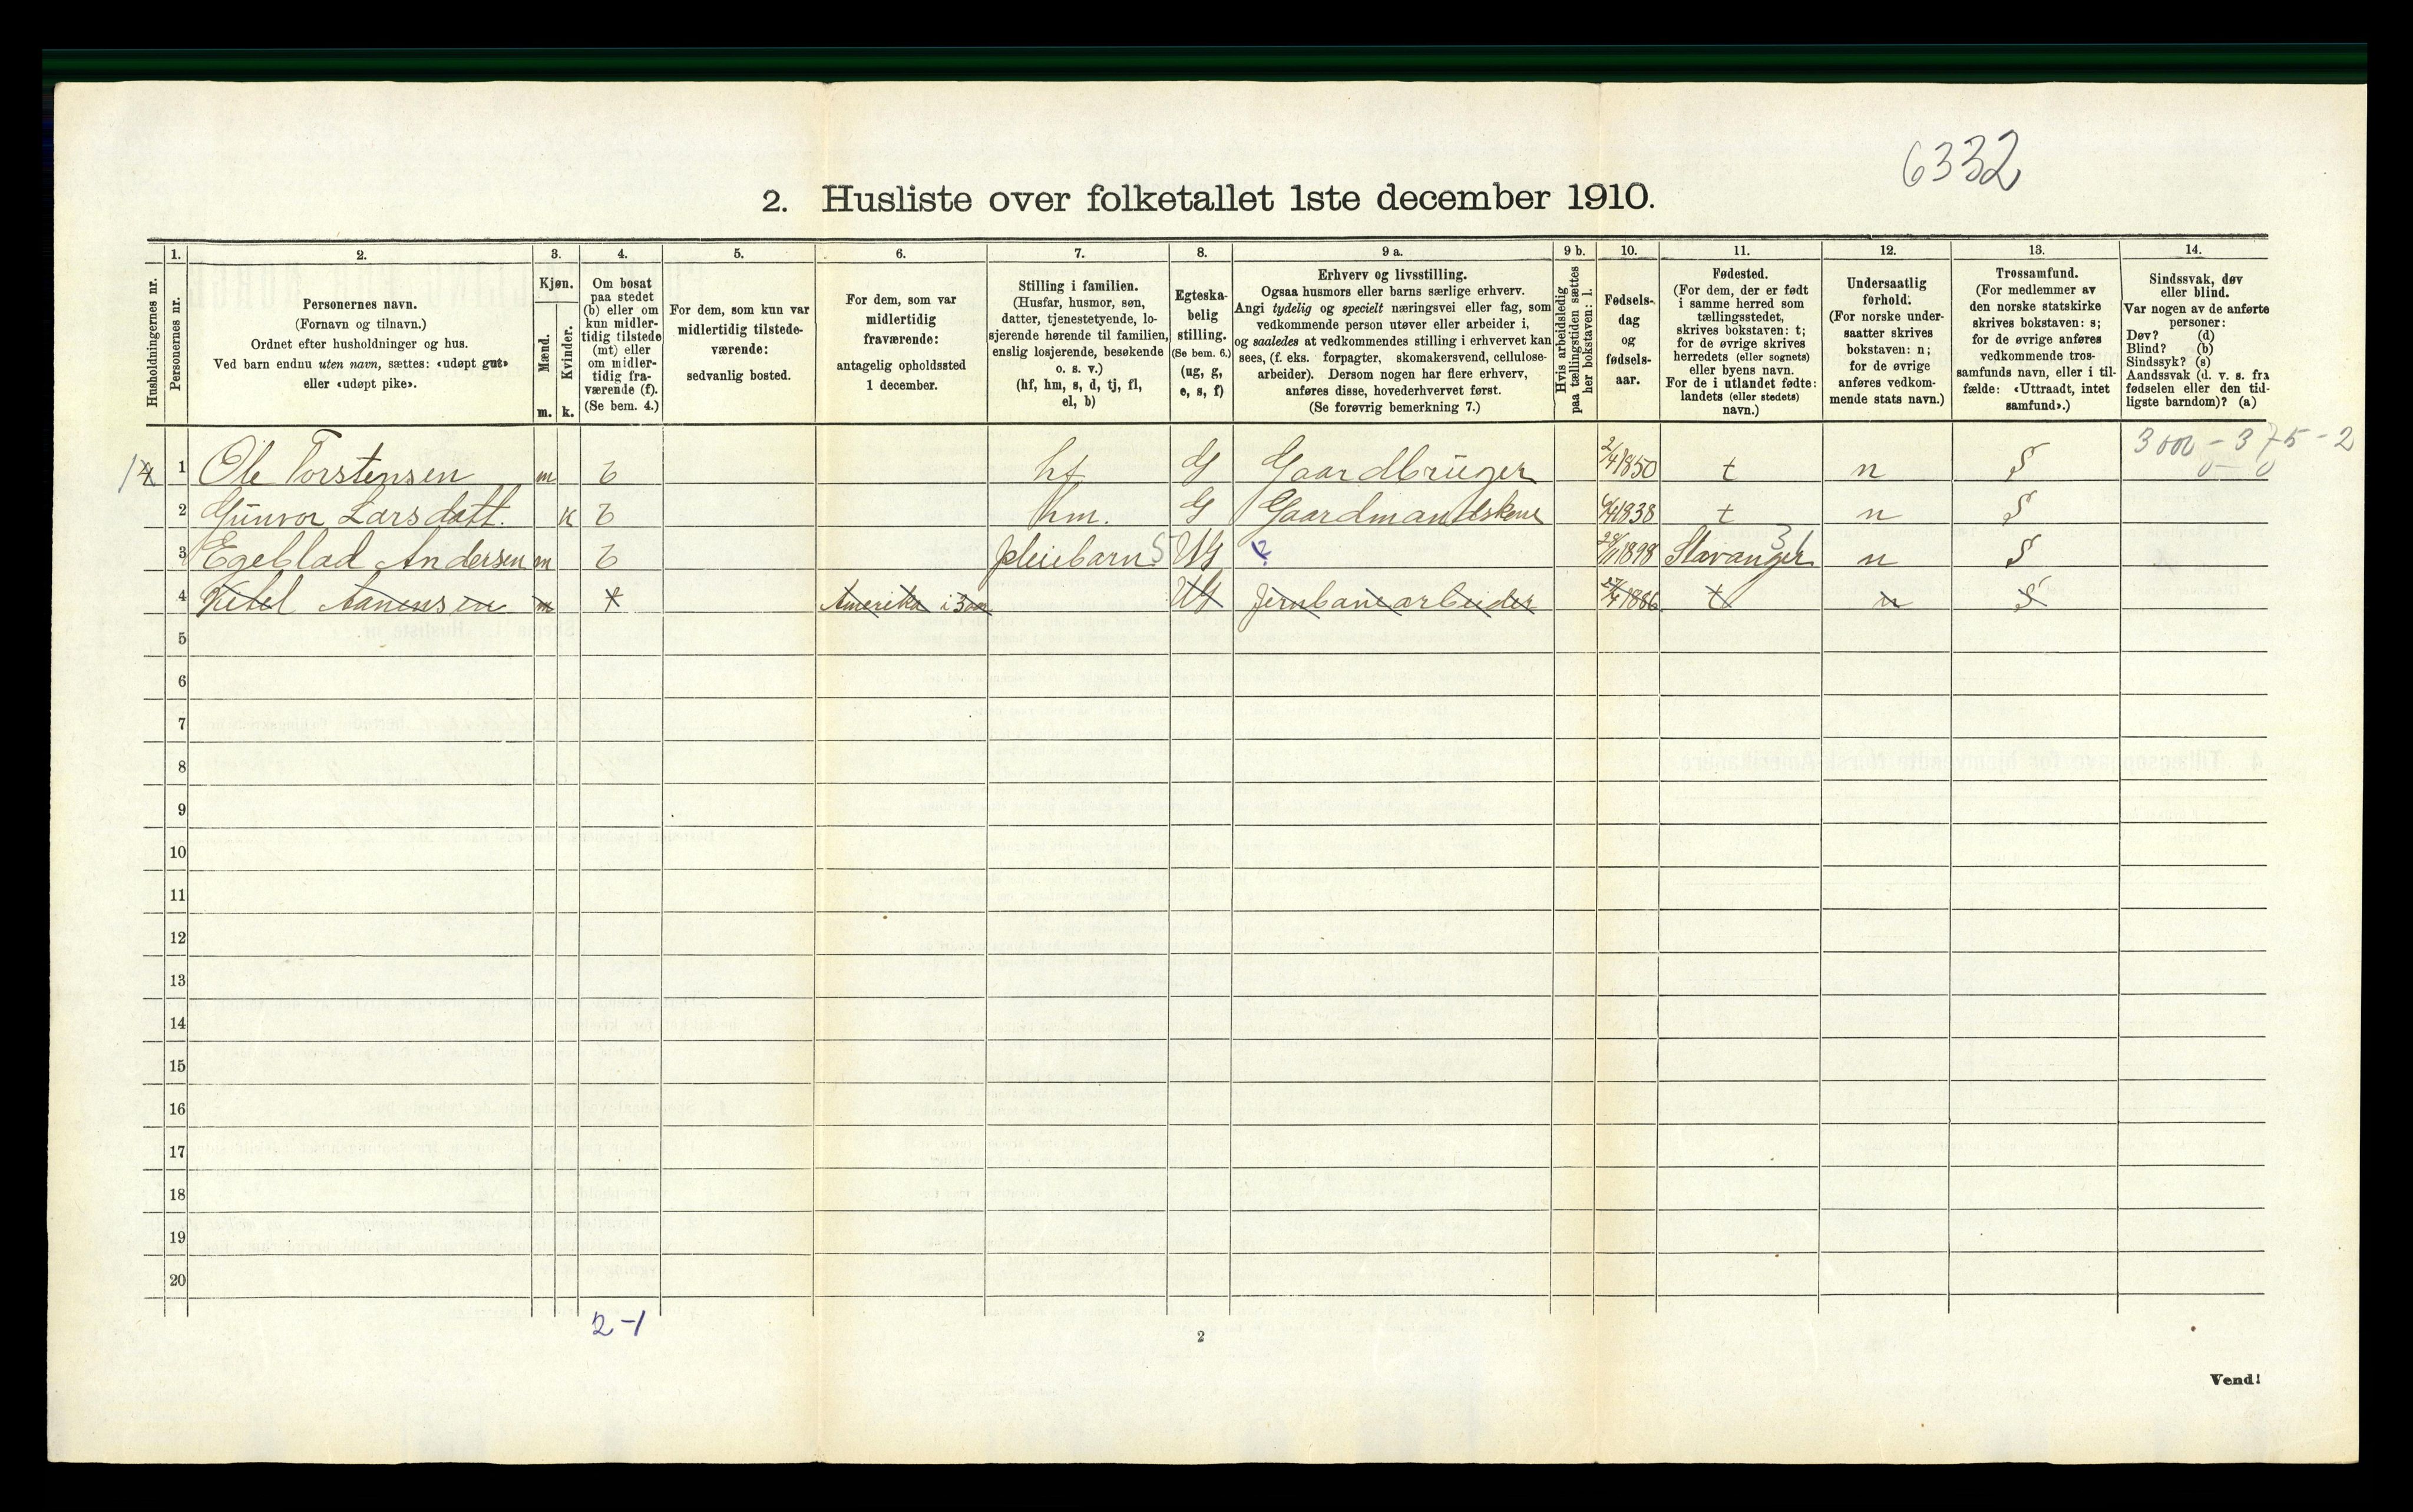 6332
2. Husliste over folketallet 1ste december 1910.
1. 2. 3. 4. 5. 6. 7. 8. 9 a. 9 b. 10. 11. 12. 13. 14.
Husholdningernes nr.
Personernes nr.
Personernes navn.
(Fornavn og tilnavn.)
Ordnet efter husholdninger og hus.
Ved barn endnu uten navn, sættes: «udøpt gut»
eller «udøpt pike».
Kjøn.
Mænd.
Kvinder.
m. k.
Om bosat
paa stedet
(b) eller om
kun midler-
tidig tilstede
(mt) eller
om midler-
tidig fra-
værende (f).
(Se bem. 4.)
For dem, som kun var
midlertidig tilstede-
værende:
sedvanlig bosted.
For dem, som var
midlertidig
fraværende:
antagelig opholdssted
1 december.
Stilling i familien.
(Husfar, husmor, søn,
datter, tjenestetyende, lo-
sjerende hørende til familien,
enslig losjerende, besøkende
o. s. v.)
(hf, hm, s, d, tj, fl,
el, b)
Egteska-
belig
stilling.
(Se bem. 6.)
(ug, g,
e, s, f)
Erhverv og livsstilling.
Ogsaa husmors eller barns særlige erhverv.
Angi tydelig og specielt næringsvei eller fag, som
vedkommende person utøver eller arbeider i,
og saaledes at vedkommendes stilling i erhvervet kan
sees, (f. eks. forpagter, skomakersvend, cellulose-
arbeider). Dersom nogen har flere erhverv,
anføres disse, hovederhvervet først.
(Se forøvrig bemerkning 7.)
Hvis arbeidsledig
paa tællingstiden sættes
her bokstaven: l.
Fødsels-
dag
og
fødsels-
aar.
Fødested.
(For dem, der er født
i samme herred som
tællingsstedet,
skrives bokstaven: t;
for de øvrige skrives
herredets (eller sognets)
eller byens navn.
For de i utlandet fødte:
landets (eller stedets)
navn.)
Undersaatlig
forhold.
(For norske under-
saatter skrives
bokstaven: n;
for de øvrige
anføres vedkom-
mende stats navn.)
Trossamfund.
(For medlemmer av
den norske statskirke
skrives bokstaven: s;
for de øvrige anføres
vedkommende tros-
samfunds navn, eller i til-
fælde: «Uttraadt, intet
samfund».)
Sindssvak, døv
eller blind.
Var nogen av de anførte
personer:
Døv? (d)
Blind? (b)
Sindssyk? (s)
Aandssvak (d. v. s. fra
fødselen eller den tid-
ligste barndom)? (a)
3000 - 375 - 2
1 Ole Torstensen m b hf G Gaardbruger 2/4 1850 t n S
2 Gunvor Larsdatt. k b hm. G Gaardmandskone 1838 t n S
3 Egeblad Andersen m b Pleiebarn S UG 1898 Stavanger n S
4 Ketel Aanensen m Amerika i 3 aar UG Jernbanearbeider 1886 t n S
5
6
7
8
9
10
11
12
13
14
15
16
17
18
19
20
2-1
2
Vend!